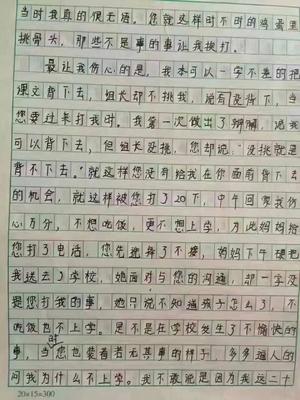 当时我真的很无语。您就这样时不时的鸡蛋里
挑骨头，那些不是事的事让我挨打。
最让我伤心的是，我本可以一字不差的把
课文背下去，组长却不挑我，说有没背下，当
您要过来打我时。我第一次做出了辩解，说我
可以背下去，但组长没挑，您却说"没挑就是
背不下去。"就这样您没有给我在你面前背下去
的机会，就这样被您打了20下，中午回家我伤
心万分，不想吃饭，更不想上学，为此妈妈给
您打了电话，您先挂掉了不接，妈妈下午硬把
我送去了学校，她面对与您的沟通，却一字没
提您打我的事，她只说不知道孩子怎么了，不
吃饭也不上学。是不是在学校发生了不愉快的
事，当时您也装着若无其事的样子，多多逼人的
问我为什么不上学。我不敢说是因为我这二十
20×15=300